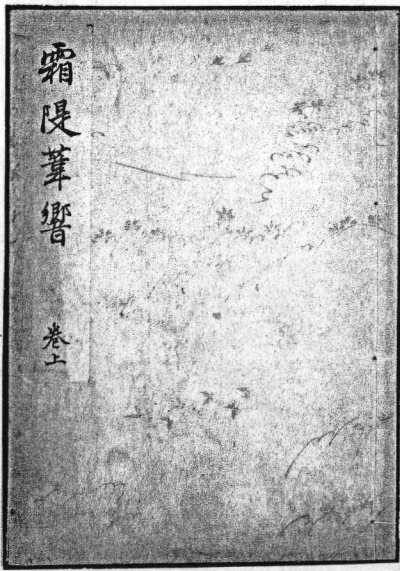 霜隄葦響
卷上